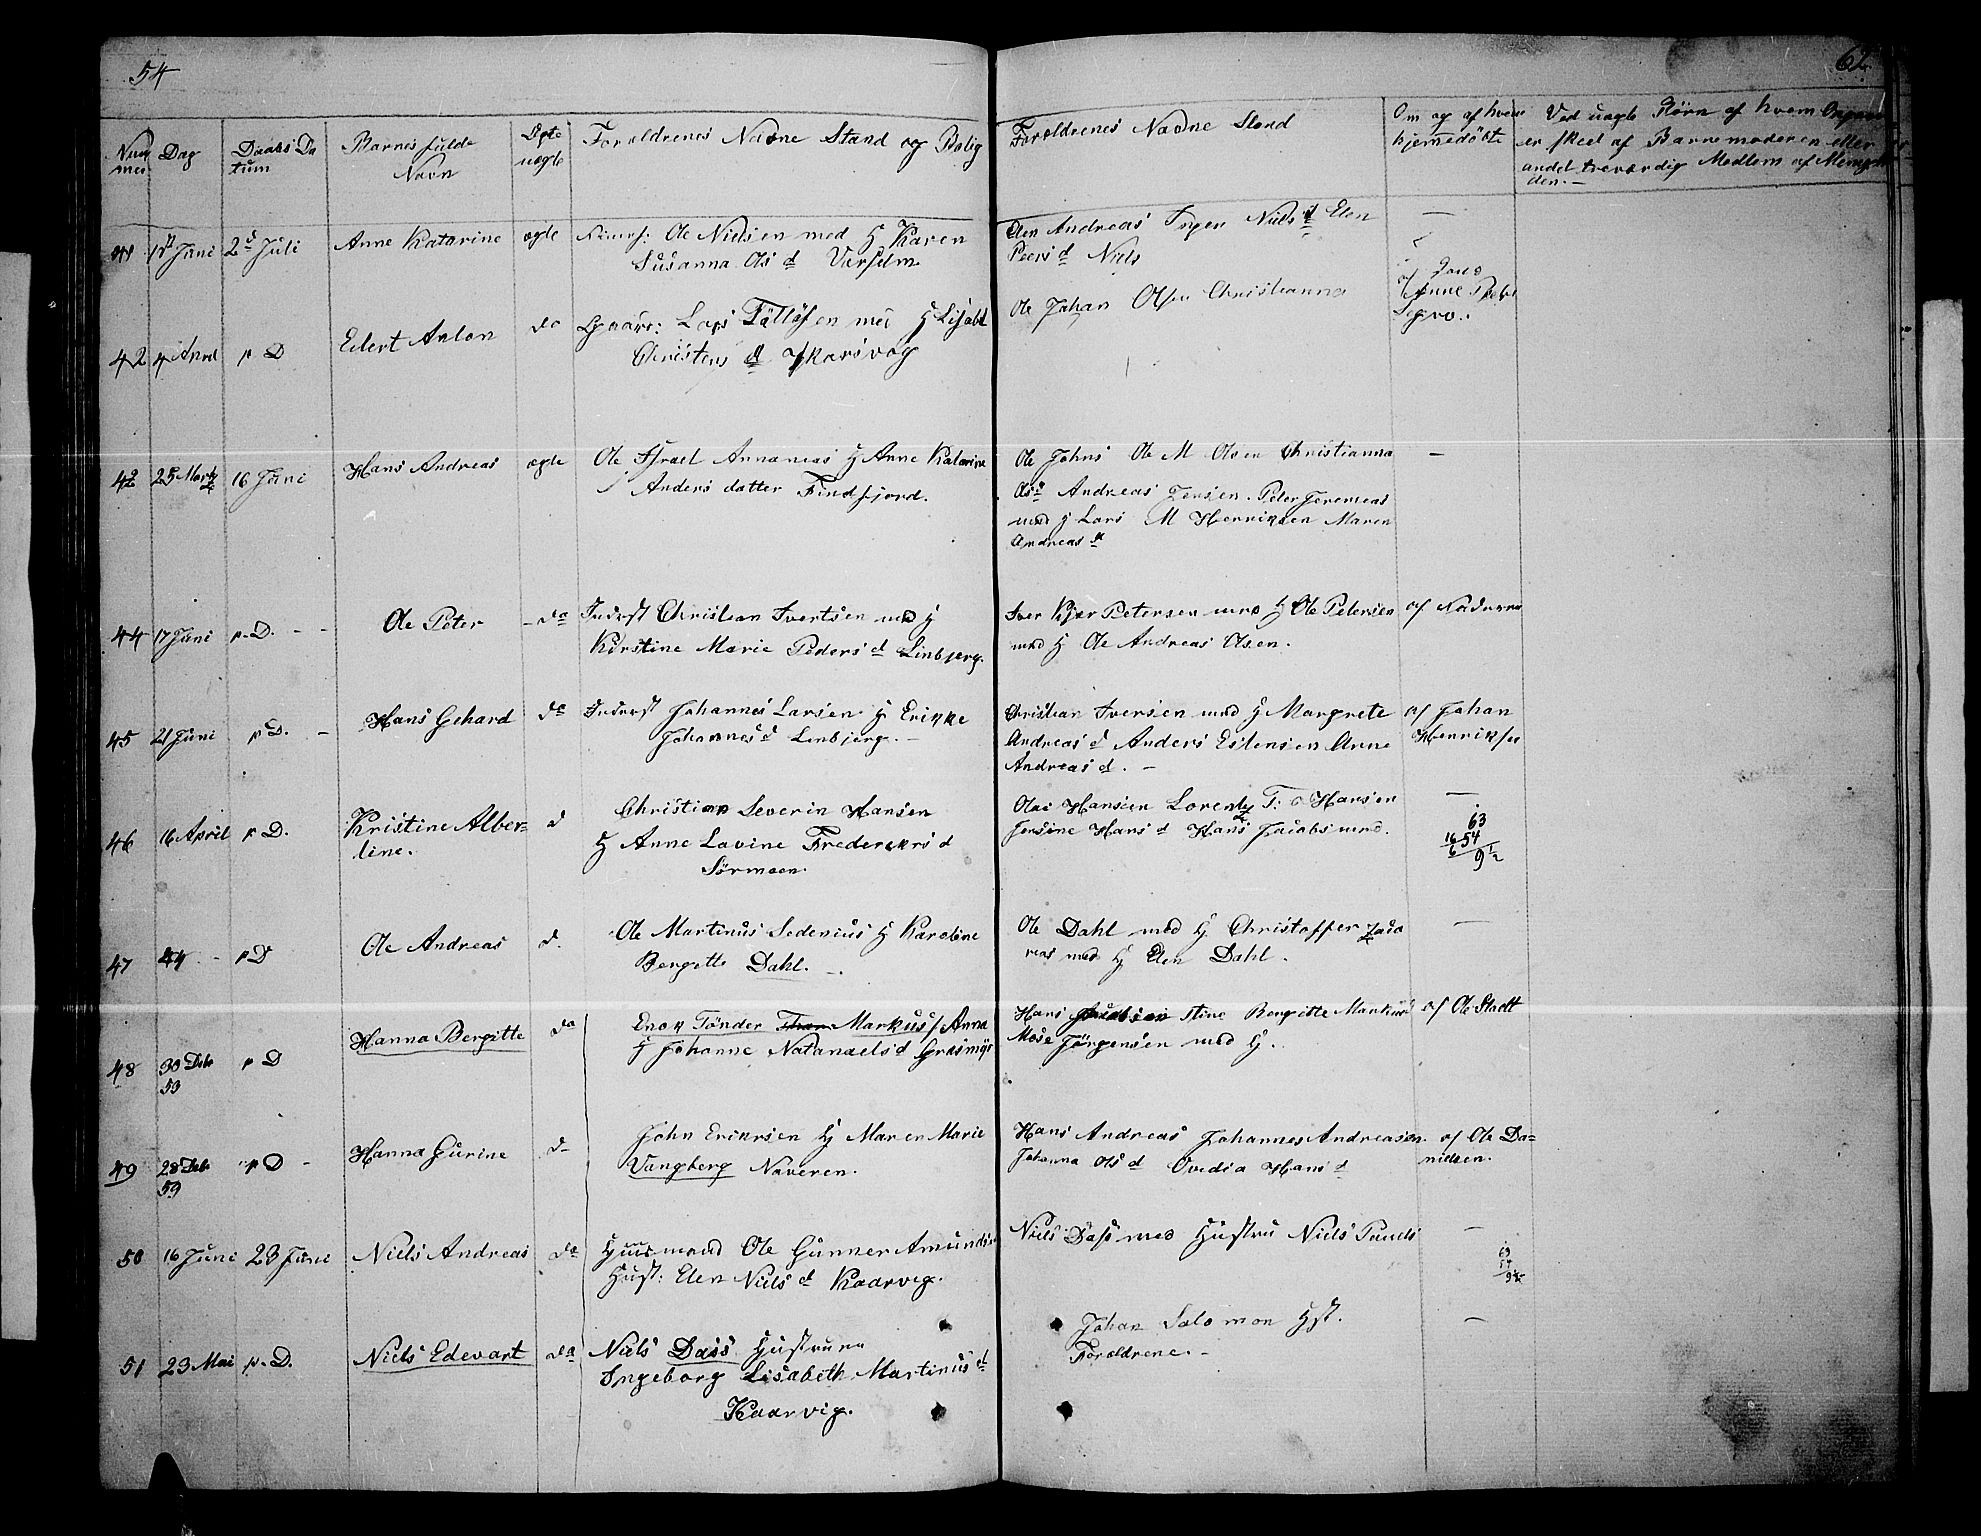 54
62
Num
mer
Dag
Daabs Da
tum
Barnes fulde
Navn
Ægte
uægte
Foreldrenes Navne Stand og Bolig
Forældrenes Navne Stand
Om og af hvem
hjemmedöbte
Ved uægte Börn af hvem
er skeel af Barnemoderen eller
andet troværdig Medlem af
den.-
41 Juni 2d Juli Anne Katarine ægte Ole Nielsen med H Karen
Susanna Ols d
Elen Andreas Niels d Elen
Peers d Niels
42 4 April p D Edert Anton do Lars Tölläfsen med H Lisabet
Christens d
Ole Johan Olsen Christianna
af
Anne
42 25 Marts 16 Juni Hans Andreas ægte Ole Israel Annanias H Anne Katarina
Anders datter Findfjord.
Ole Johns Ole M Olsen Christianna
Ols d Andreas Jensen. Peter Jeremias
med H Lars M Henriksen Maren
Andreas d
44 17 Juni p.D. - - Ole Peter - do Inderst Christian Ivertsen med H
Kirstine Marie Peders d Linbjerg.
Iver Kjer Petersen med H Ole Petersen
med H Ole Andreas Olsen.
af
45 21 Juni p D. - Hans Gehard do Inderst Johannes Larsen H Erikke
Johannes d Linbjerg. -
Christian Iversen med H Margrete
Andreas d Anders Estensen Anne
Andreas d. -
af Johan
Henriksen
46 16 April p D. Kristine Alber-
tine.
d Christian Severin Hansen
H Anne Lovine Frederekrs d
Sörmoen.
Olai Hansen Lorents T: a Hansen
Jensine Hans d Hans Jacobs med.
-
63
54
9 1/2
47 - p D Ole Andreas d. Ole Martinus Sedenius H Kareline
Bergitte Dahl. -.
Ole Dahl med H Christoffer
med H Elen Dahl.
-
48 30 Debr
53
p D Hanna Bergitte do Enok Tönder Markus / Anna
H Johanne Natanaels d Grasmÿr
Hans stine Bergitte Markus d
Mose Jörgensen med H.
af Ole Stadt
49 28 Debr
59
p D - Hanna Gurine d- John Eriksen H Maren Marie
Vangberg Naveren.
Hans Andreas Johannes Andreasen.
Johanna Ols d Ovedia Hans d
af Ole Da=
nielsen.
50 16 Juni 23 Juni Niels Andreas do Huusmand Ole Gunner Amunds
Hust: Elen Niels d Kaarvig.
Niels Dass med Hustru Niels Pauels
-
63
54
9
51 23 Mai p. D. Niels Edevart do Niels Dass Hustruna
Ingeborg Lisabeth Martinus d
Kaarvig.
Johan Salomon Hst.
Forældrene. -
-